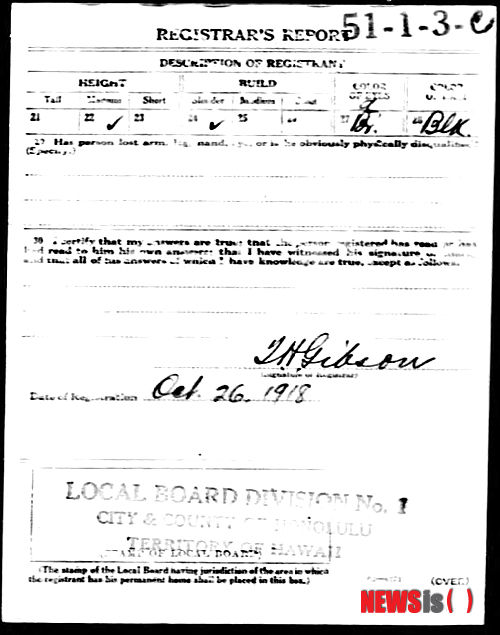 51-1-3-C
REGISTRAR'S REPORT
DESCRIPTION OF REGISTRANT
HEIGHT BUILD COLOR OF EYES COLOR OF HAIR
Tall Medium Short Slender Medium Stout
21 22 ✓ 23 24 ✓ 25 27 Br. 28 Blk.
29 Has person lost arm, leg, hand, eye, or is he obviously physically disqualified?
(Specify.)
30 I certify that my answers are true; that the person registered has read or has
had read to him his own answers; that I have witnessed his signature or
and that all of his answers of which I have knowledge are true, except as follows:
T.H. Gibson
(Signature of Registrar)
Date of Registration Oct. 26, 1918
LOCAL BOARD DIVISION No. 1
CITY & COUNTY OF HONOLULU
TERRITORY OF HAWAII
(STAMP OF LOCAL BOARD)
(The stamp of the Local Board having jurisdiction of the area in which
the registrant has his permanent home shall be placed in this box.)
(OVER)
NEWSis( )